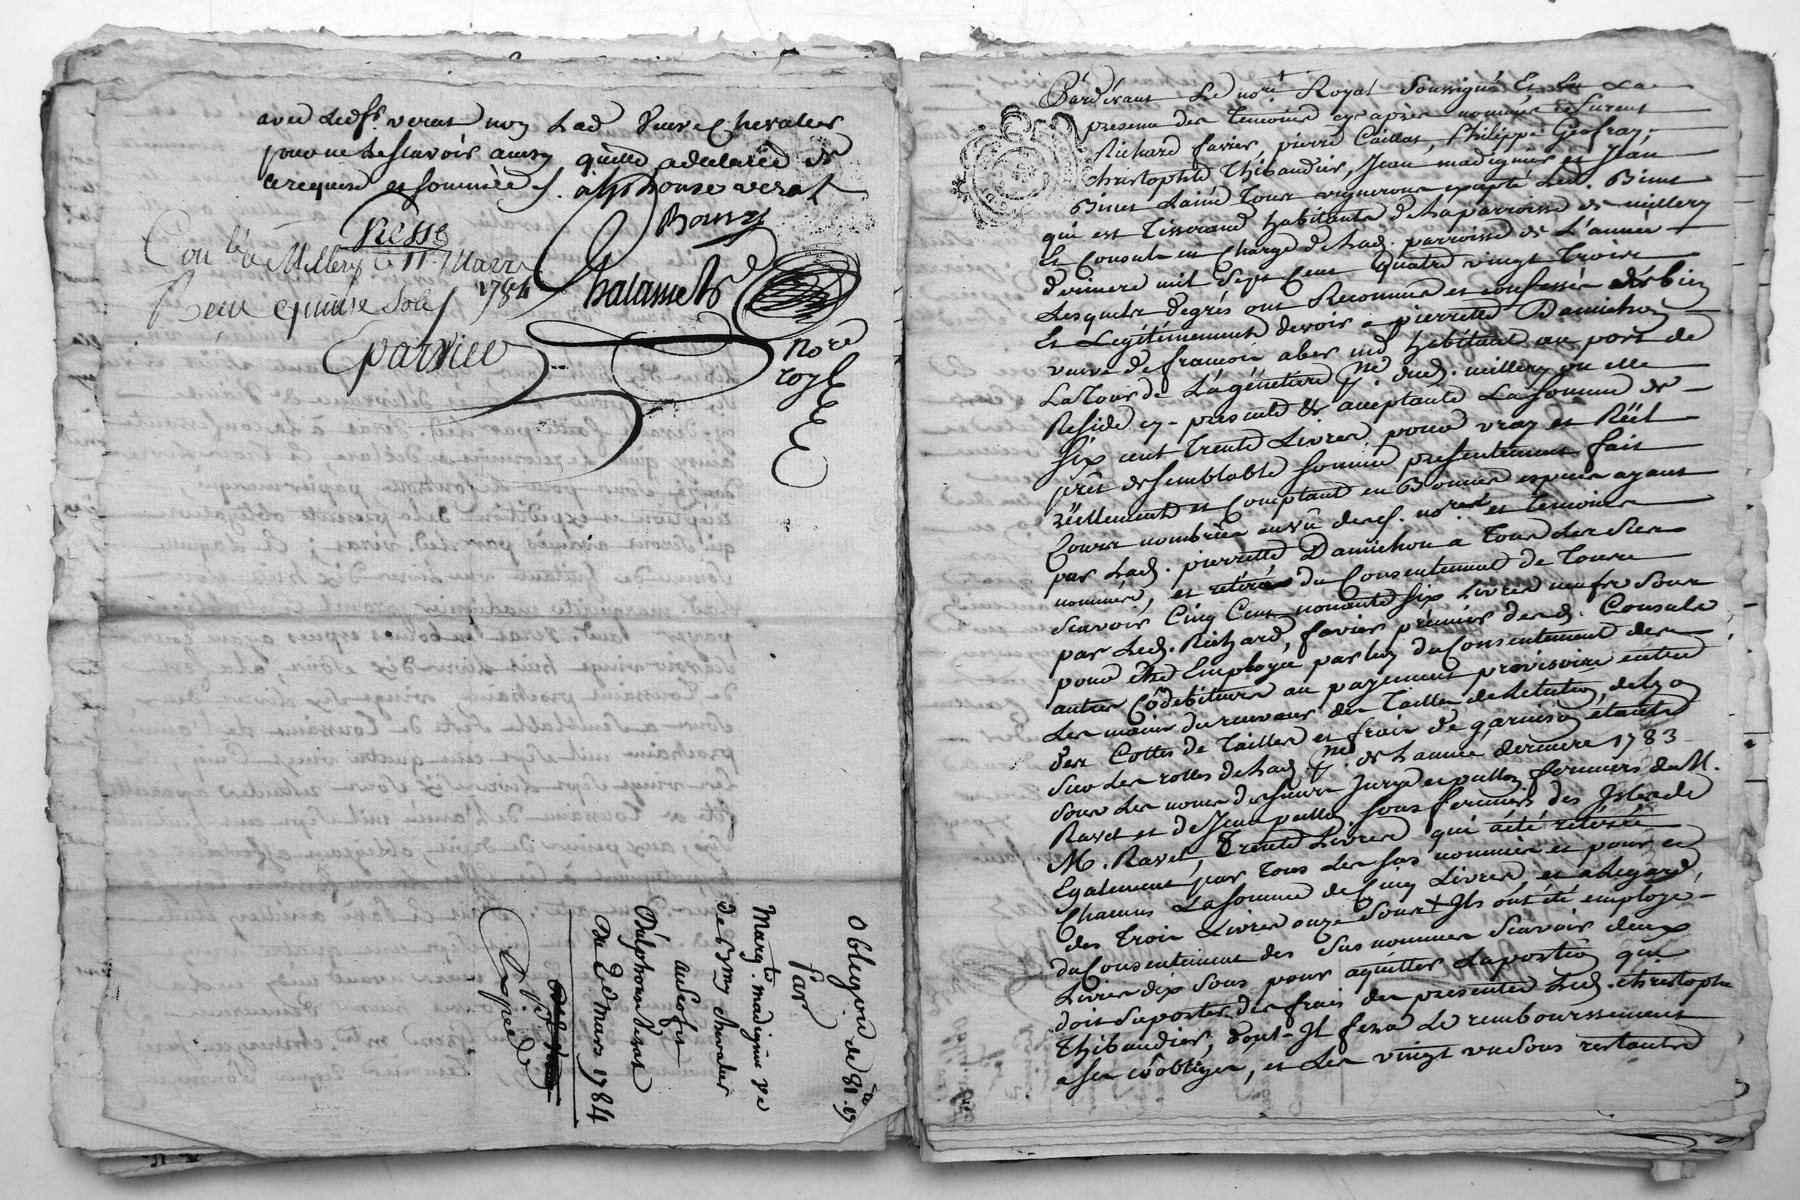 avec ledf. verat non Lad veuve Chevalier
pour ne le scavoir ainsy quelle a declaré de
ce requise et sommée f. alphonse verat
Presse
Bouvy
Con lé a Millery le 11 Mars
1784
Reçu quinze Sols
Chalamel
parxiee
Nore
royl
Obligaon de
par
Margte madignie ve
de Remy chevalier
au profit
D'alphonse Verat
Du 2 de mars 1784
Expiee
Pardevant Le nore Royal Soussigné Et En La
presence des temoins cy après nommés furent
Richard favier, pierre Caillat, philippe Geofray,
christophe Thibaudier, Jean madignier et Jean
Binet Lainé tous vignerons excepté Led. Binet
qui est Tisserand habitants de la parroisse de millery
Et Consuls en Charge de Lad. parroisse de L'année
derniere mil Sept Cent quatre vingt trois
Lesquels de grés ont Reconnus et confessés bien
Et Legitimement devoir a pierrette Damichon
veuve de francois aber md habitant au port de
La Tour de La geneticre dud. millery ou elle
Reside cy-presente et acceptante La Somme de
Six cent Trente Livres pour vray et Réel
prêt de semblable somme presentement fait
réellement et Comptant en Bonnes especes ayant
Cours nombrées au vû desd. nores et temoins
par Lad. pierrette Damichon a tous Les Sus
nommés, et retirés du Consentement de Tous
Scavoir Cinq Cent nonante Six Livres neuf Sous
par Led. Richard favier premier desd. Consuls
pour etre Employée par luy du Consentement des
autres Codebiteurs au payement provisoire entre
Les mains du receveur des Tailles de Lelection de Lyon
des Cottes de Tailles et frais de garnison étants
Sur Les rolles de Lad. pse de L'année derniere 1783
Sous Les noms de Jurge fermiers de M.
Ravet et de Jean sous fermiers des Isles de
M. Ravet, Trente Livres qui a été retirée
Egalement par tous Les sus nommés et pour
Chacuns La Somme de Cinq Livres et a legard
des trois Livres onze Sous Ils ont été employé
du Consentement des Sus nommés Scavoir deux
Livres dix Sous pour aquitter La portion que
doit Suporter des frais des presentes Led. christophe
Thibaudier, dont Il fera Le remboursement
a Ses coobligés, et Les vingt un Sous restants